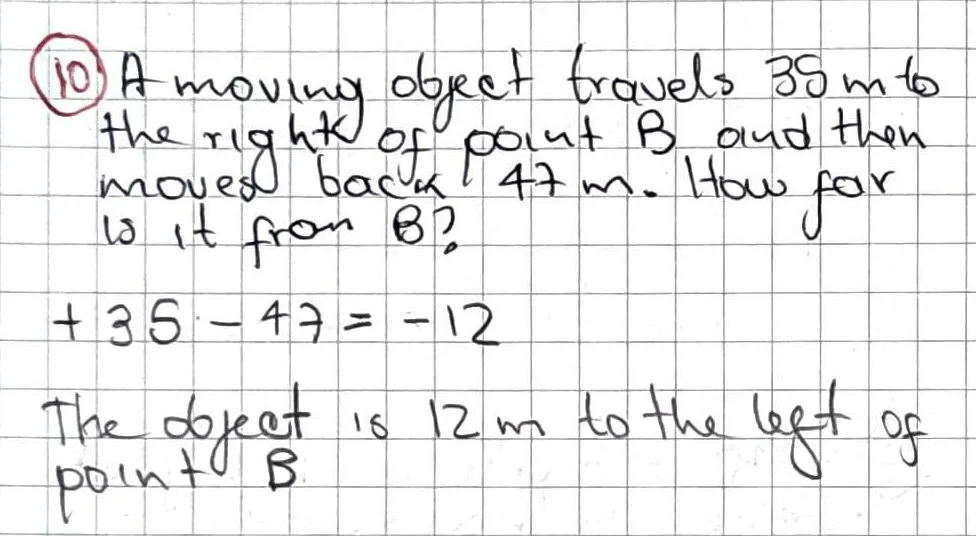 10 A moving object travels 35 m to
the right of point B and then
moves back 47 m. How far
is it from B?
+ 35 - 47 = -12
The object is 12 m to the left of
point B